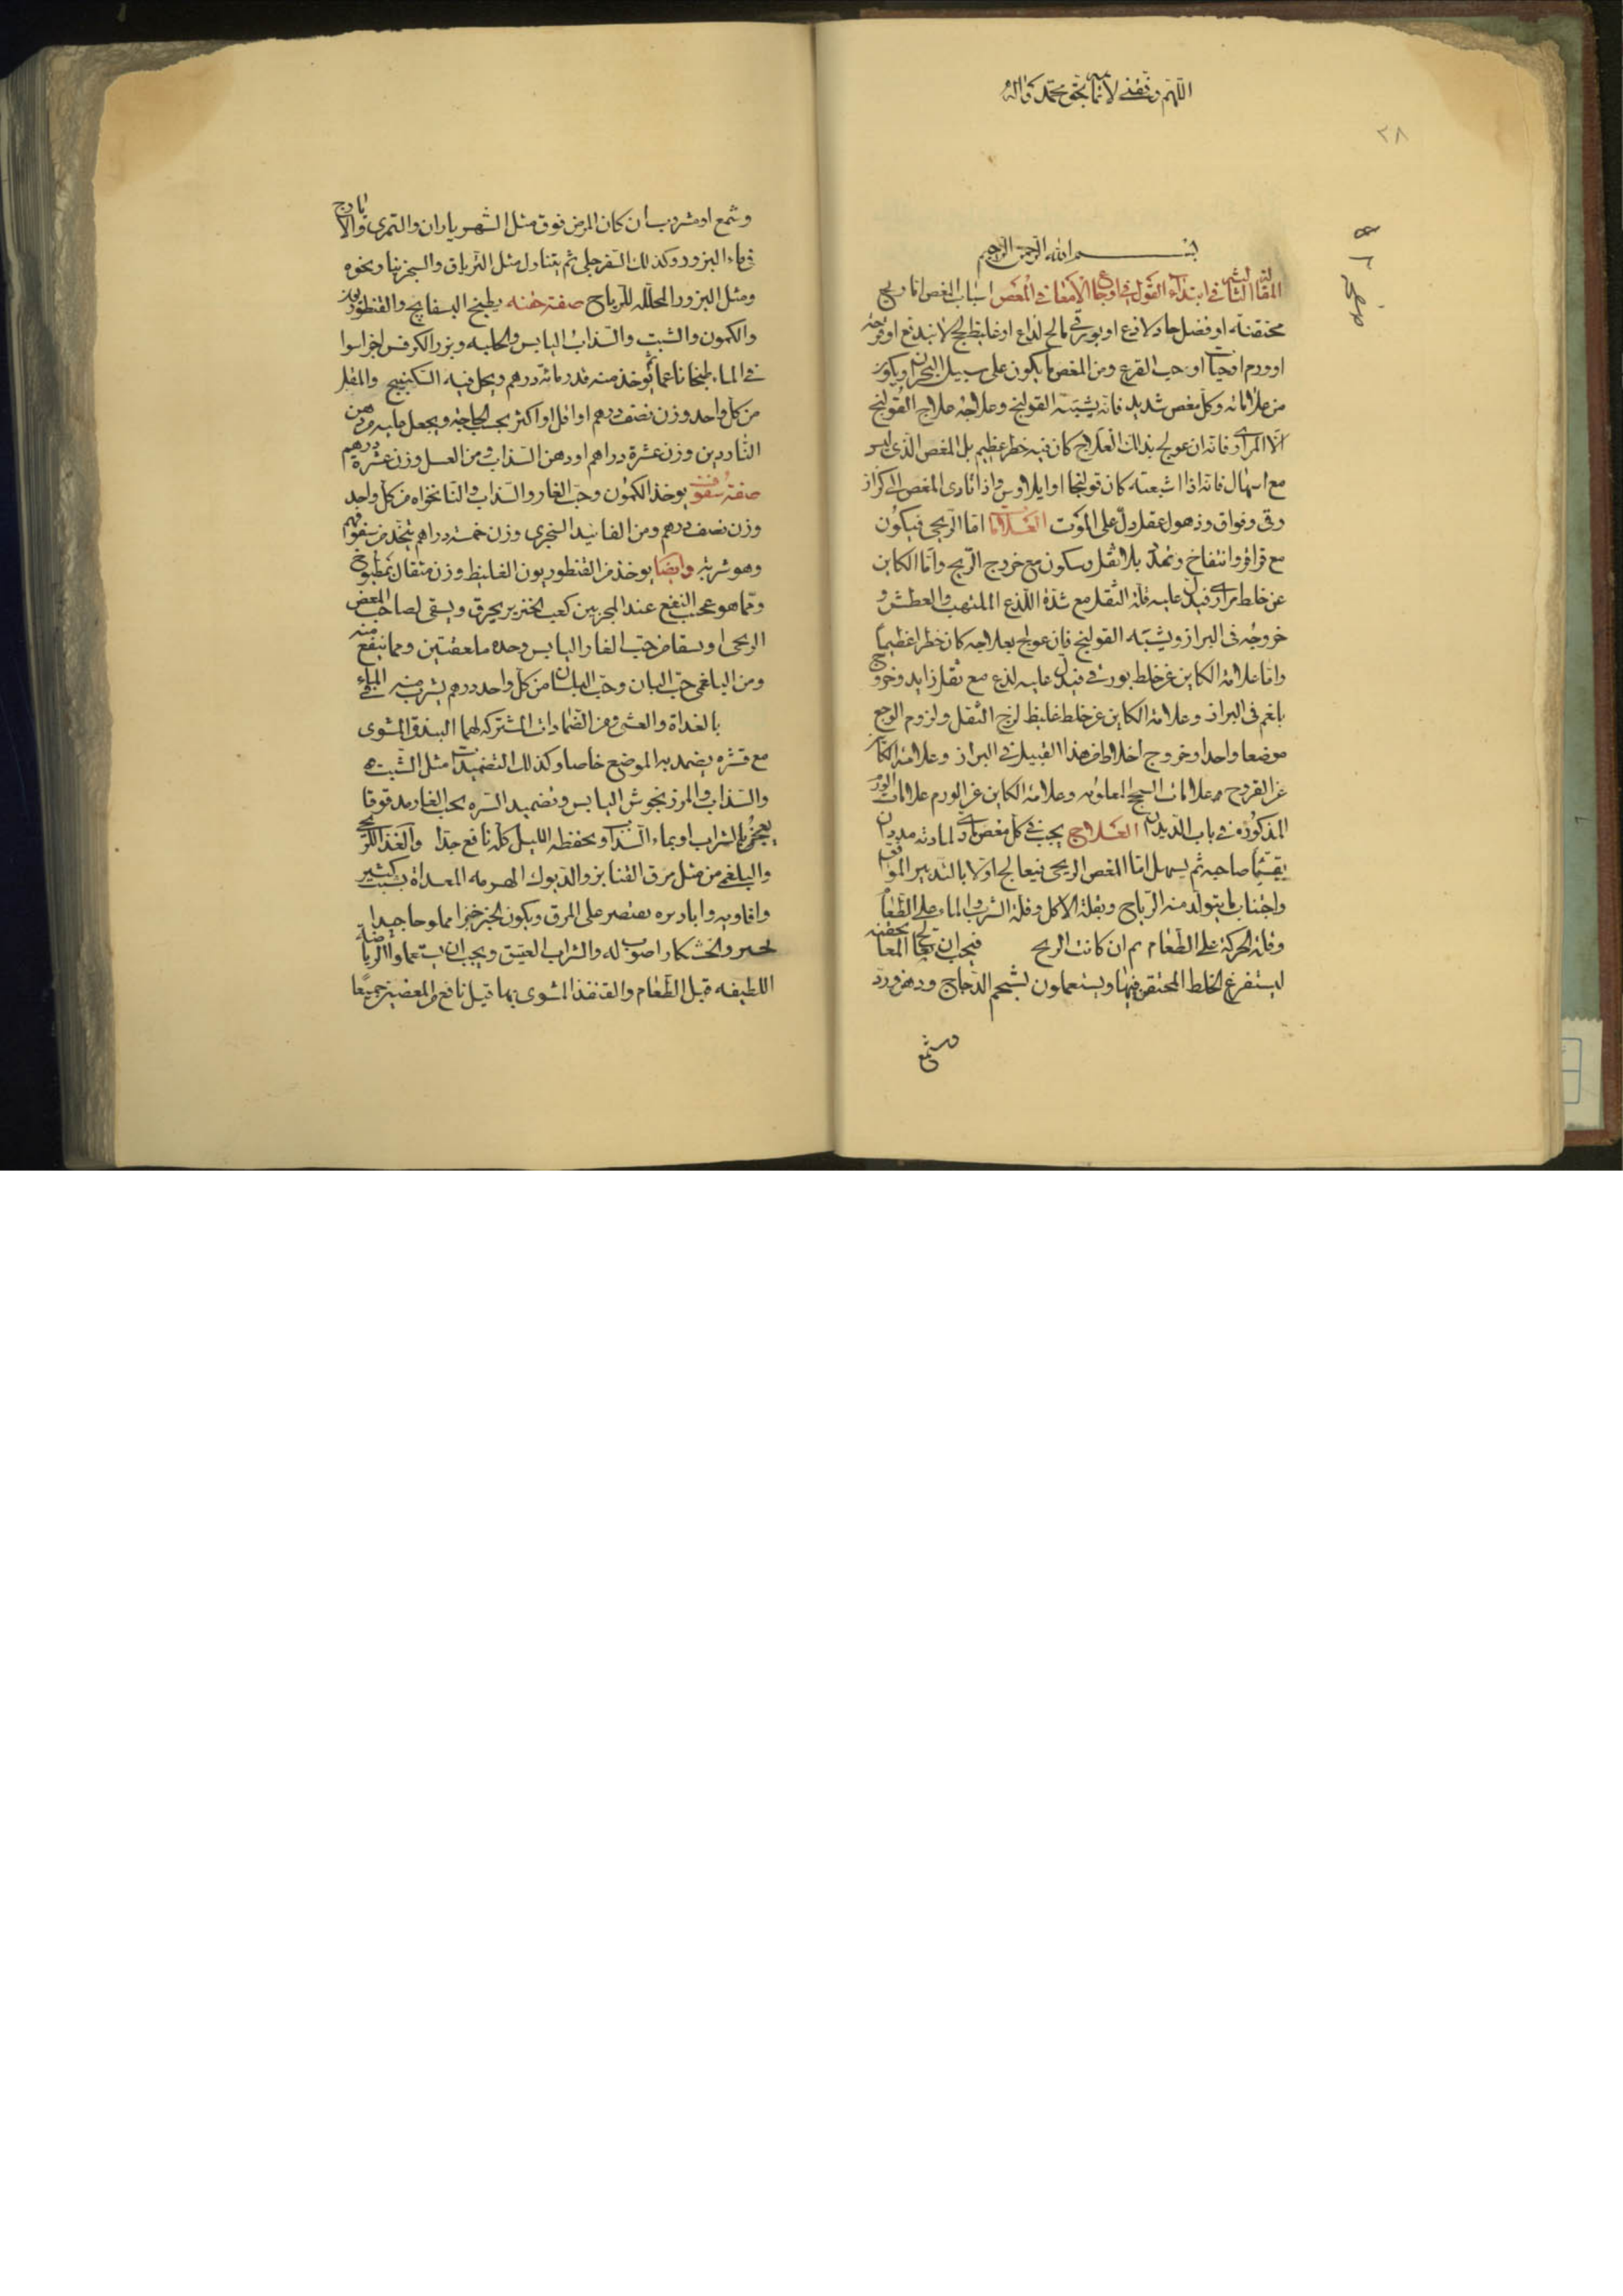 اللهم وفقني لاتمامه بحق محمد وآله
٢٨
بسم الله الرحمن الرحيم
المقالة الثالثة في ابتداء القول في اوجاع الامعا في المغص اسباب المغص اما ريح
محتقنة او فضل حاد لاذع او بورقي مالح لذاع او غليظ لحج لا يندفع او قرحة
او ورم او حيات او حب القرع ومن المغص ما يكون على سبيل البحران ويكون
من علاماته وكل مغص شديد فانه يشبه القولنج وعلاجه علاج القولنج
الا المراري فانه ان عولج بذلك العلاج كان فيه خطر عظيم بل المغص الذي ليس
مع اسهال فانه اذا اشتد كان قولنجا او ايلاوس واذا تادى المغص الى كزاز
وقي وفواق وذهول عقل دل على الموت العلامات اما الريحي فيكون
مع قراقر وانتفاخ وتمدد بلا ثقل وسكون مع خروج الريح واما الكاين
عن خلط مراري فيدل عليه قلة الثقل مع شدة اللذع الملتهب والعطش و
خروجه في البراز ويشبه القولنج فان عولج بعلاجه كان خطرا عظيما
واما علامة الكاين عن خلط بورقي فيدل عليه لذع مع ثقل زايد وخروج
بلغم في البراز وعلامة الكاين عن خلط غليظ لزج الثقل ولزوم الوجع
موضعا واحدا وخروج اخلاط من هذا القبيل في البراز وعلامة الكاين
عن القروح علامات السحج المعلومة وعلامة الكاين عن الورم علامات الورم
المذكورة في باب الديدان العلاج يجب في كل مغص مادي لمادته مدد ان
يقيا صاحبه ثم يسهل اما المغص الريحي فيعالج اولا بالتدبير الموافق
واجتناب ما يتولد منه الرياح وبقلة الاكل وقلة الشرب والماء على الطعام
وقلة الحركة على الطعام ثم ان كانت الريح فيجب ان تعالج المعا بحقنة
ليستفرغ الخلط المحتقن فيها ويستعملون بشحم الدجاج ودهن ورد
وشمع
وشمع او مشروب ان كان المرض فوق مثل الشهرياران والتمري والايارج
في ماء البزور وكذلك السفرجلي ثم يتناول مثل الترياق والسجزينا ونحوه
ومثل البزور المحللة للرياح صفة حقنه يطبخ البسفايج والقنطوريون
والكمون والشبت والسذاب اليابس والحلبه وبزر الكرفس اجزا سوا
في الماء طبخا ناعما ثم يوخذ منه قدر مائة درهم ويحل فيه السكبينج والمقل
من كل واحد وزن نصف درهم او اقل او اكثر بحسب الحاجة ويجعل عليه من دهن
الناردين وزن عشرة دراهم او دهن السذاب ومن العسل وزن عشرة دراهم
صفة سفوف يوخذ الكمون وحب الغار والسذاب والنانخواه من كل واحد
وزن نصف درهم ومن الفانيد السنجري وزن خمسة دراهم يتخذ من سفوفهم
وهو شربة وايضا يوخذ من القنطوريون الغليظ وزن مثقال بمطبوخ
ومما هو عجيب النفع عند المجربين كعب الخنزير يحرق ويسقى لصاحب المغص
الريحي او يسقا من حب الغار اليابس وحده ملعقتين ومما ينفع منه
ومن البلغمي حب البان وحب البلسان من كل واحد درهم يشرب منه في الماء
بالغداة والعشي ومن الضمادات المشتركة لهما البندق المشوي
مع قشره يضمد به الموضع خاصا وكذلك التضميدات مثل الشبت
والسذاب والمرزنجوش اليابس وتضميد السره بحب الغار مدقوقا
يعجن بالشراب او بماء السذاب ويحفظه الليل كله نافع جدا والغذا للريحي
والبلغمي من مثل مرق القنابر والديوك الهرمه المعداة بشبت كثير
وافاويه وابازيره يقتصر على المرق ويكون الخبز خبزا مملوحا جيدا
لخبز والخشكار اصوب له والشراب العتيق ويجب ان يستعملوا الرياضة
اللطيفه قبل الطعام والقنفذ المشوي فيما قيل نافع من المغصين جميعا